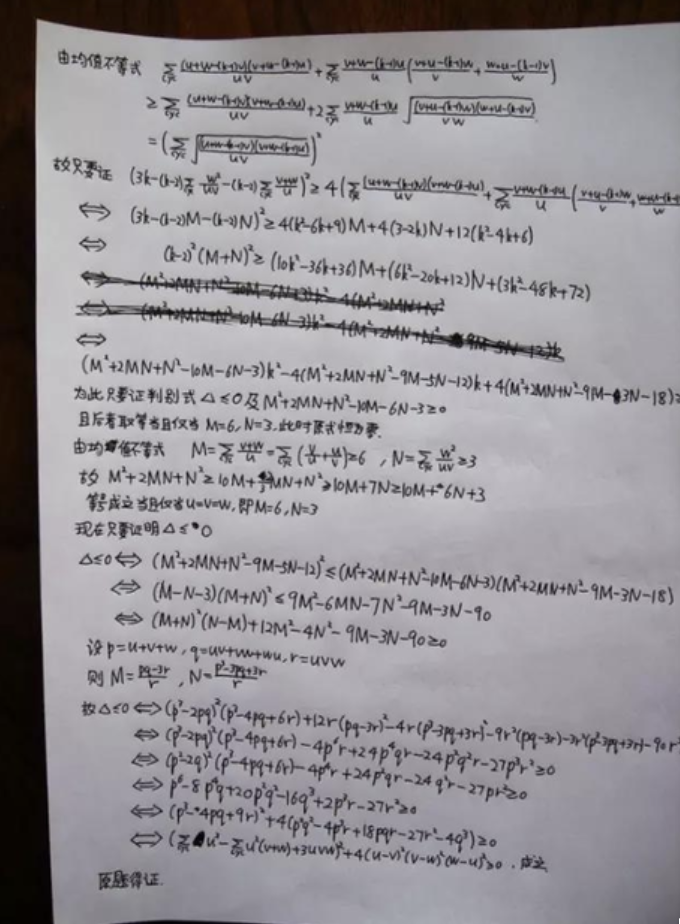 由均值不等式 ∑cyc (u+w-(k-1)v)(v+u-(k-1)w)/uv + ∑cyc v+w-(k-1)u/u (v+u-(k-1)w/v + w+u-(k-1)v/w)
≥ ∑cyc (u+w-(k-1)v)(v+w-(k-1)u)/uv + 2∑cyc v+w-(k-1)u/u √((v+u-(k-1)w)(w+u-(k-1)v)/vw)
= (∑cyc √((u+w-(k-1)v)(v+w-(k-1)u)/uv))²
故只要证 (3k-(k-2)∑cyc w²/uv-(k-2)∑cyc v+w/u)² ≥ 4(∑cyc (u+w-(k-1)v)(v+w-(k-1)u)/uv + ∑cyc v+w-(k-1)u/u (v+u-(k-1)w/v +
⟺ (3k-(k-2)M-(k-2)N)² ≥ 4(k²-6k+9)M+4(3-2k)N+12(k²-4k+6)
⟺ (k-2)²(M+N)² ≥ (10k²-36k+36)M+(6k²-20k+12)N+(3k²-48k+72)
⟺
(M²+2MN+N²-10M-6N-3)k²-4(M²+2MN+N²-9M-5N-12)k+4(M²+2MN+N²-9M-3N-18)≥
为此只要证判别式 Δ≤0 及 M²+2MN+N²-10M-6N-3≥0
且后者取等当且仅当 M=6, N=3, 此时原式恒为零.
由均值不等式 M=∑cyc v+w/u=∑cyc (v/u+u/v)≥6 , N=∑cyc w²/uv≥3
故 M²+2MN+N²≥10M+MN+N²≥10M+7N≥10M+6N+3
等号成立当且仅当u=v=w, 即M=6, N=3
现在只要证明Δ≤0
Δ≤0 ⟺ (M²+2MN+N²-9M-5N-12)² ≤ (M²+2MN+N²-10M-6N-3)(M²+2MN+N²-9M-3N-18)
⟺ (M-N-3)(M+N)² ≤ 9M²-6MN-7N²-9M-3N-90
⟺ (M+N)²(N-M)+12M²-4N²-9M-3N-90≥0
设 p=u+v+w, q=uv+vw+wu, r=uvw
则 M=pq-3r/r , N=p³-3pq+3r/r
故Δ≤0 ⟺ (p³-2pq)²(p³-4pq+6r)+12r(pq-3r)²-4r(p³-3pq+3r)²-9r²(pq-3r)-3r²(p³-3pq+3r)-90r³
⟺ (p³-2pq)²(p³-4pq+6r)-4p⁶r+24p⁴qr-24p²q²r-27p³r²≥0
⟺ (p²-2q)²(p³-4pq+6r)-4p⁴r+24p²qr-24q²r-27pr²≥0
⟺ p⁶-8p⁴q+20p²q²-16q³+2p³r-27r²≥0
⟺ (p³-4pq+9r)²+4(p²q²-4p³r+18pqr-27r²-4q³)≥0
⟺ (∑cyc u³-∑cyc u²(v+w)+3uvw)²+4(u-v)²(v-w)²(w-u)²≥0 . 成立
原题得证.